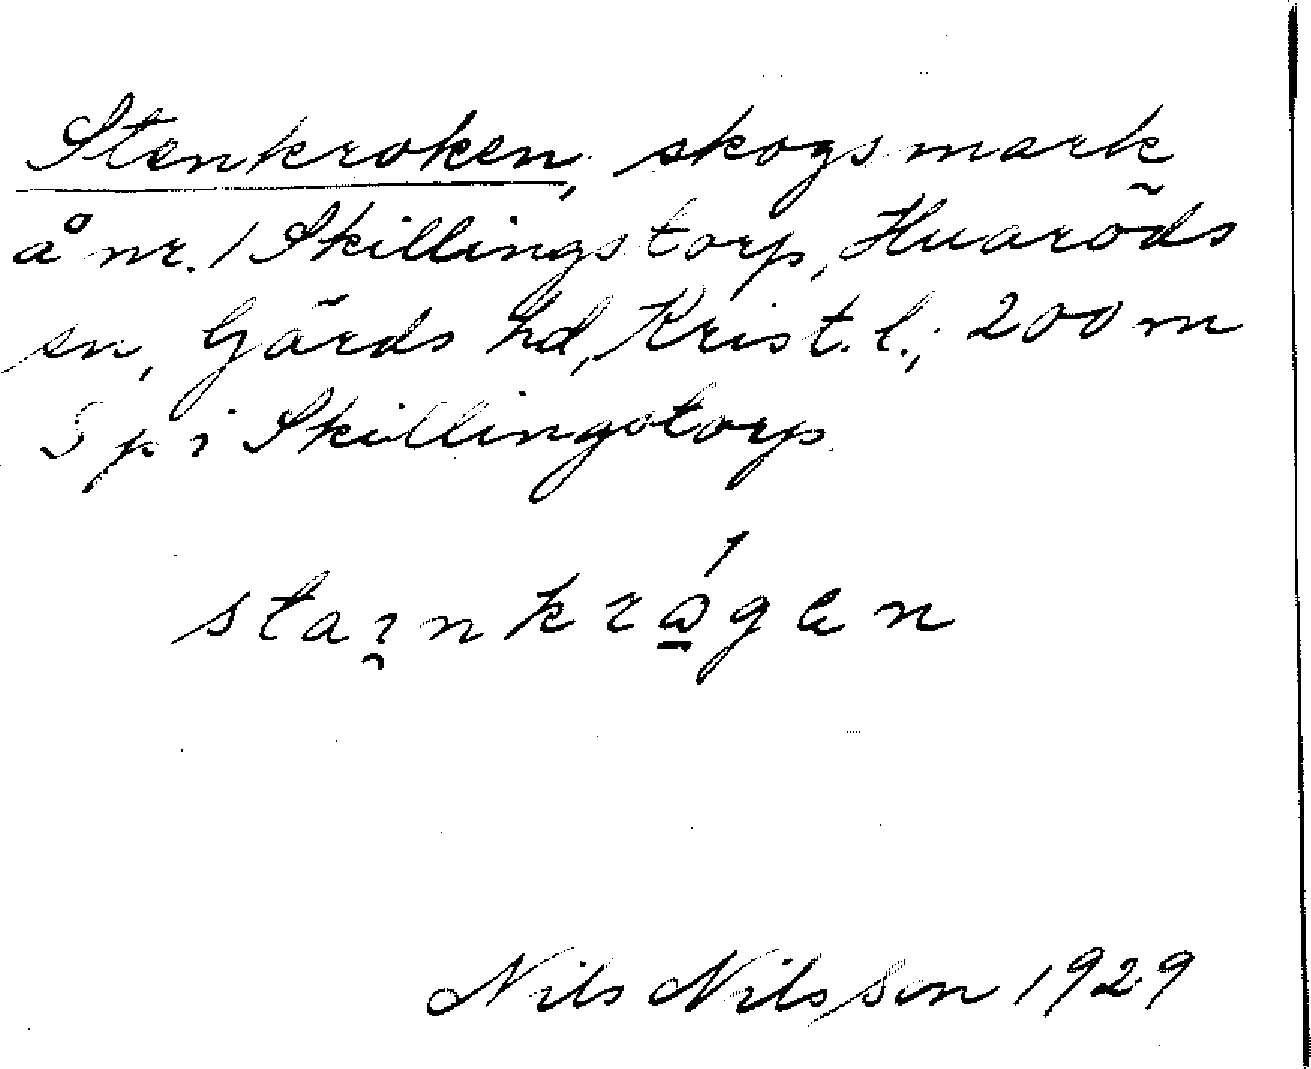 Stenkroken, skogsmark
å nr. 1 Skillingstorp, Huaröds
sn, Gärds hd, Krist. l.; 200 m
S p i Skillingstorp
stai̯nkrǻ̱gen
Nils Nilsson 1929